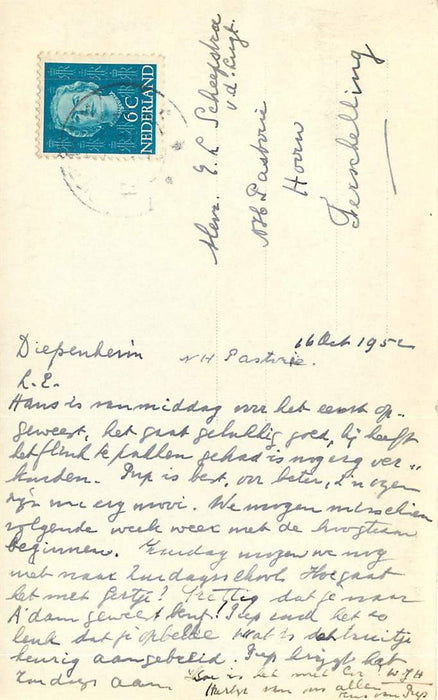 6C
NEDERLAND
Mevr. E. L. Scheepstra
v d
NH Pastorie
Hoorn
Terschelling
16 Oct 195
Diepenheim NH Pastorie.
L. E.
Hans is vanmiddag voor het eerst op-
geweest, het gaat gelukkig goed, hij heeft
het flink te pakken gehad is nog erg ver-
kouden. Piep is best, oor beter, z'n ogen
zijn nu erg mooi. We mogen misschien
volgende week weer met de
beginnen. Zondag mogen we nog
niet naar Zondagsschool. Hoe gaat
het met Gertje? Prettig dat je naar
A'dam geweest bent! Piep vond het zo
leuk dat je opbelde. Wat is truitje
keurig aangebreid. Piep krijgt het
Zondags aan. Hoe is het met
Hartel. van ons allen
Piep.